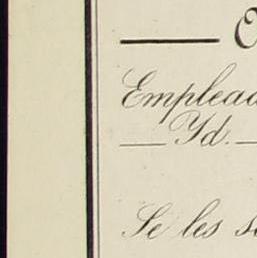 Emplead
— Yd. —
Se les s